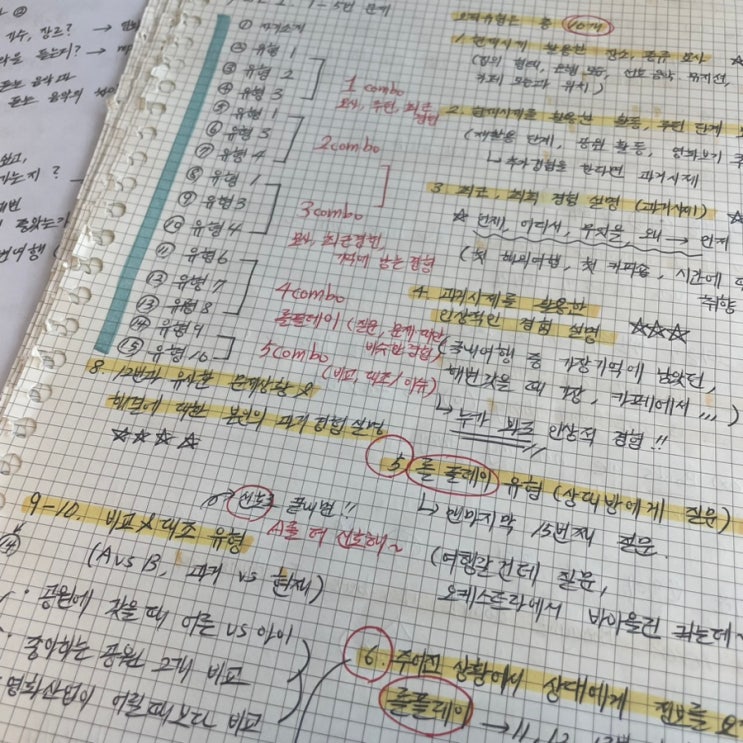 가수, 장르? →
1 - 5번 문제
① 자기소개
② 유형 1
③ 유형 2
④ 유형 3
⑤ 유형 1
⑥ 유형 3
⑦ 유형 4
⑧ 유형 1
⑨ 유형 3
⑩ 유형 4
⑪ 유형 6
⑫ 유형 7
⑬ 유형 8
⑭ 유형 9
⑮ 유형 10
1 combo
묘사, 루틴, 최근
경험
2 combo
3 combo
묘사, 최근경험
기억에 남는 경험
4 combo
롤플레이 (질문, 문제 해결,
비슷한 경험)
5 combo
(비교, 대조 / 이슈)
8. 12번과 유사한 문제상황 &
해결에 대한 본인의 과거 경험 설명
☆☆☆☆
→ 선호로 끝내면!!
A를 더 선호해~
9-10. 비교 & 대조 유형
(A vs B, 과거 vs 현재)
· 공원에 갔을 때 어른 vs 아이
· 좋아하는 공원 2개 비교
문제유형은 총 10개
1. 현재시제 활용한 장소, 종류 묘사 ☆
카페 모습과 위치)
2. 현재시제를 활용한 활동, 루틴 단계
(재활용 단계, 공원 활동, 영화보기
↳ 추가경험을 한다면 과거시제
3. 최근, 최초 경험 설명 (과거시제)
☆ 언제, 어디서, 무엇을, 왜 → 언제
(첫 해외여행, 첫 카페움, 시간에
취향
4. 과거시제를 활용한
인상적인 경험 설명 ☆☆☆
(국내여행 중 가장 기억에 남았던,
해변 갔을 때 가장, 카페에서,,,)
↳ 누가 봐도 인상적 경험!!
5. 롤플레이 유형 (상대방에게 질문)
↳ 맨마지막 15번째 질문.
(여행갈건데 질문,
오케스트라에서 바이올린 켜는데~
6. 주어진 상황에서 상대에게 정보를 요
롤플레이 → 11, 12